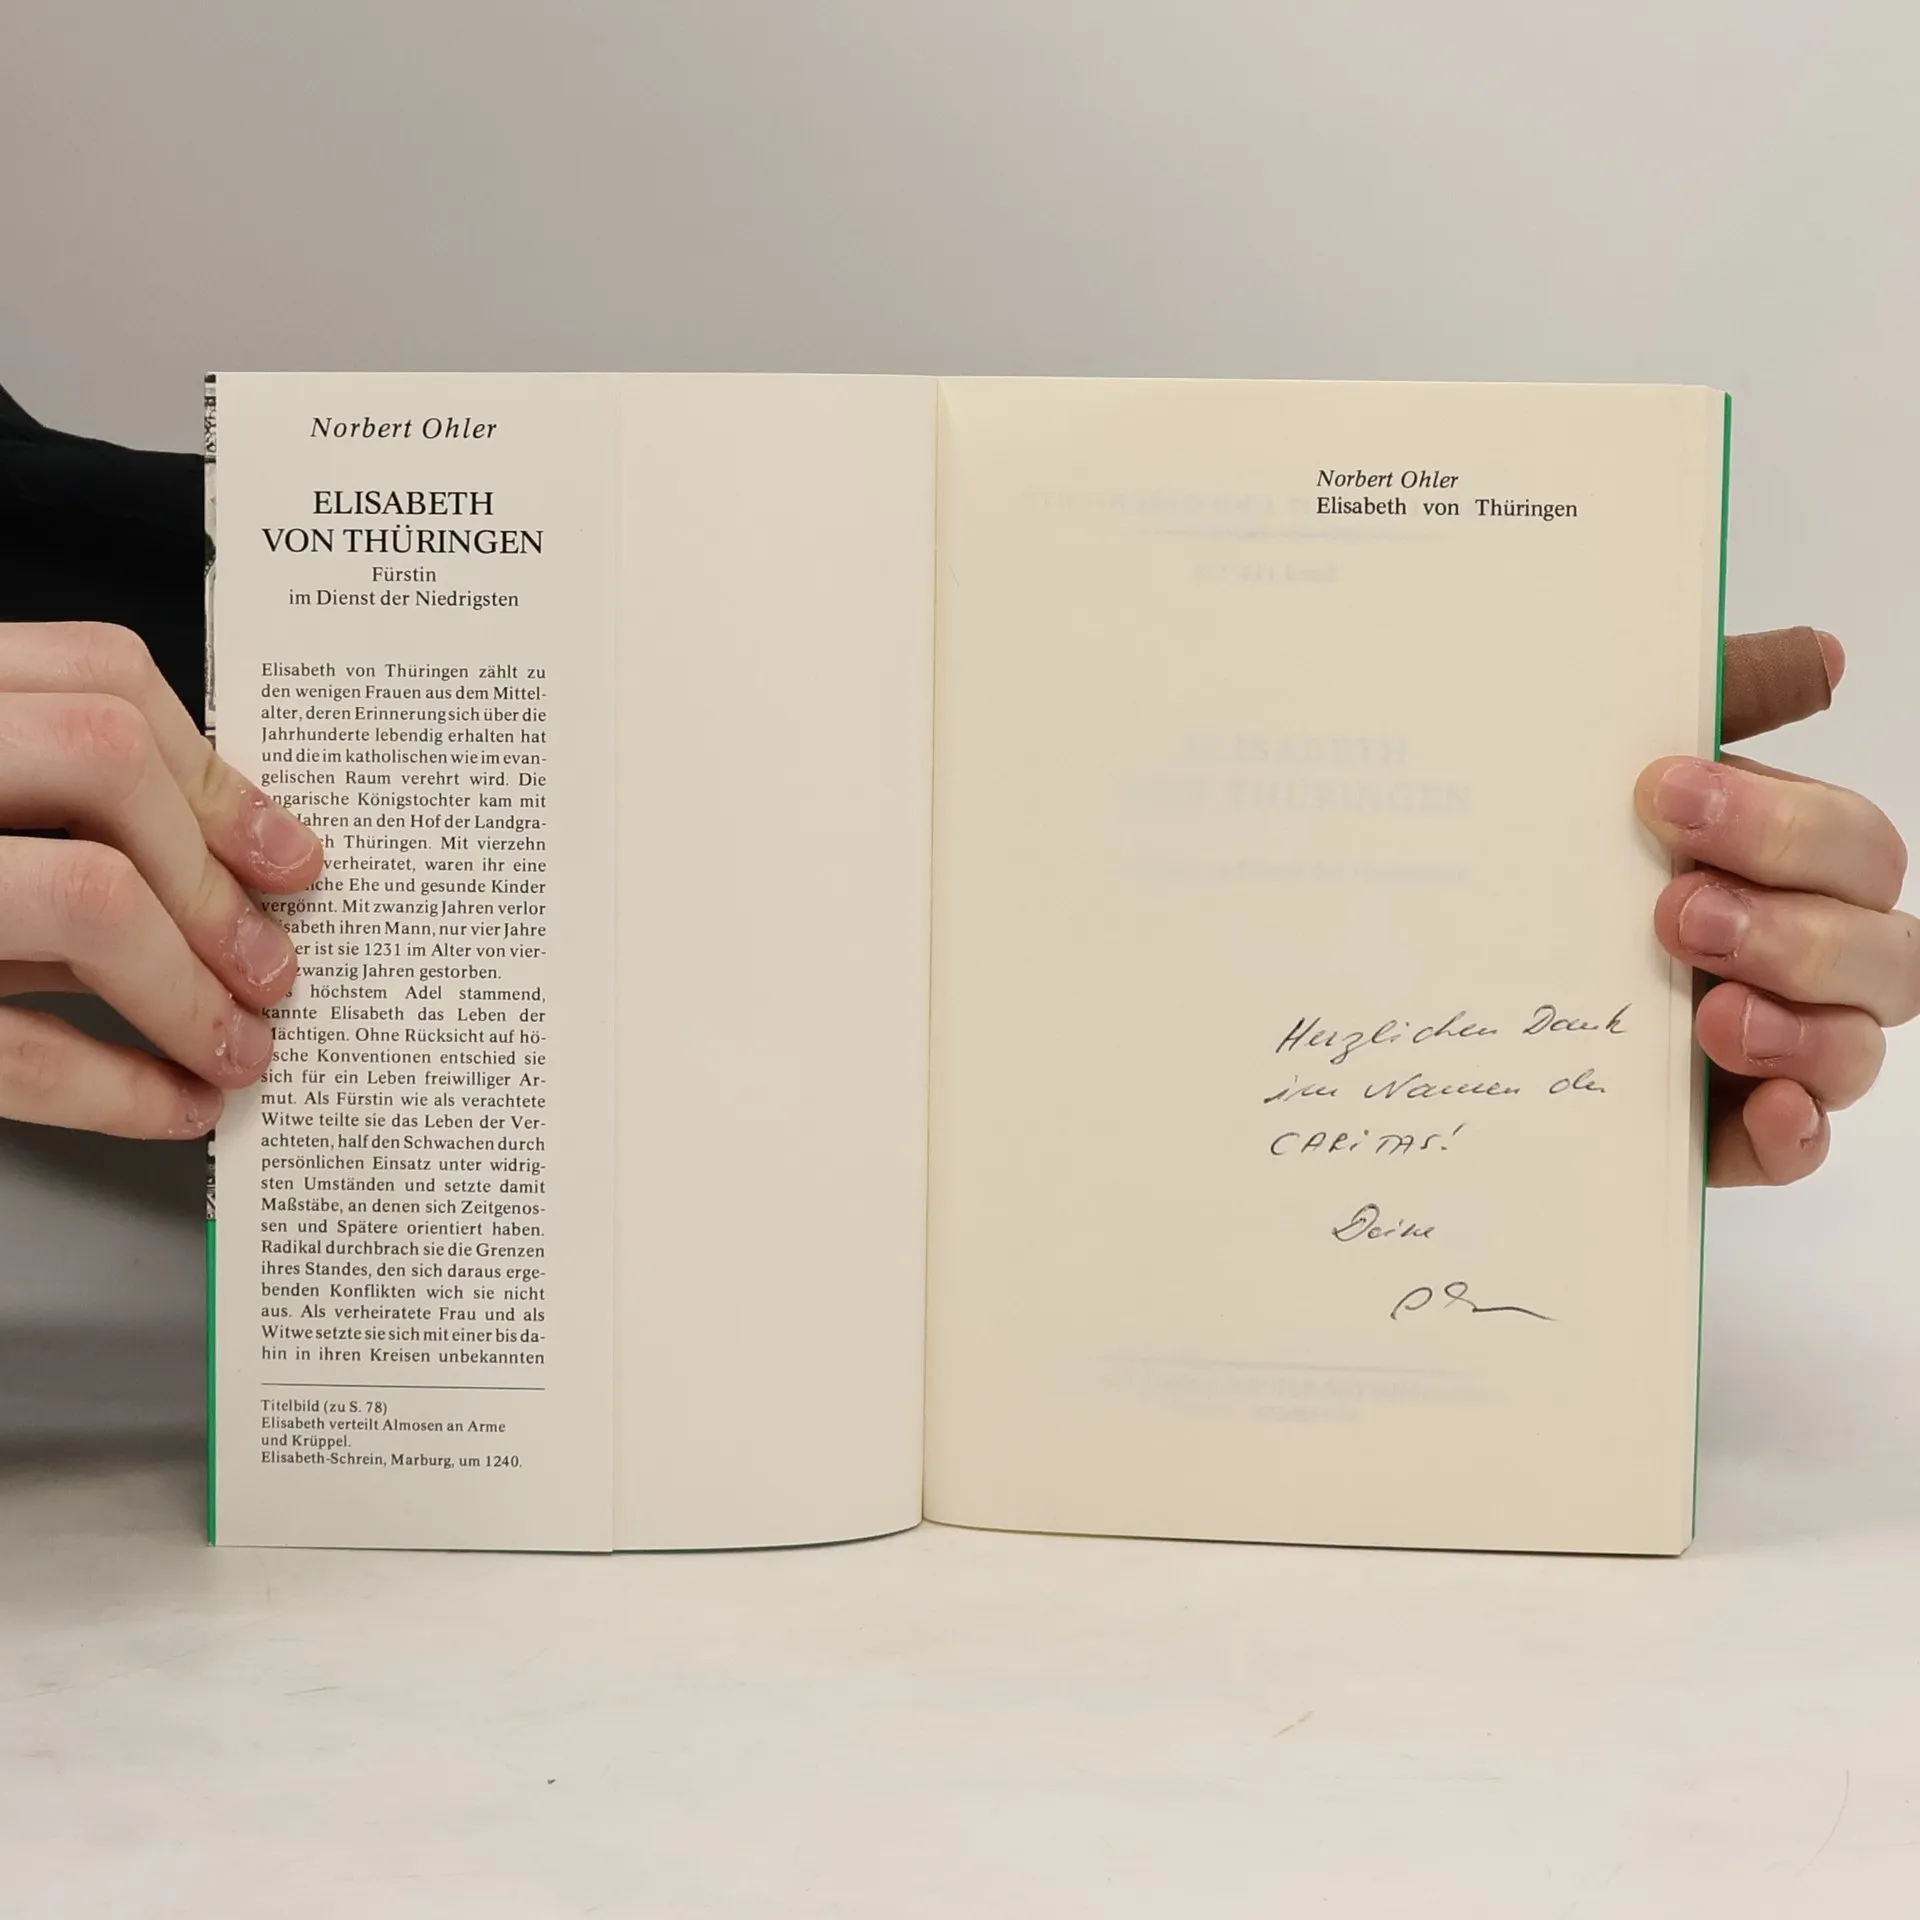 Norbert Ohler
ELISABETH
VON THÜRINGEN
Fürstin
im Dienst der Niedrigsten
Elisabeth von Thüringen zählt zu
den wenigen Frauen aus dem Mittel-
alter, deren Erinnerung sich über die
Jahrhunderte lebendig erhalten hat
und die im katholischen wie im evan-
gelischen Raum verehrt wird. Die
ngarische Königstochter kam mit
Jahren an den Hof der Landgra-
Thüringen. Mit vierzehn
verheiratet, waren ihr eine
Ehe und gesunde Kinder
vergönnt. Mit zwanzig Jahren verlor
isabeth ihren Mann, nur vier Jahre
er ist sie 1231 im Alter von vier-
zwanzig Jahren gestorben.
höchstem Adel stammend,
kannte Elisabeth das Leben der
Mächtigen. Ohne Rücksicht auf hö-
sche Konventionen entschied sie
sich für ein Leben freiwilliger Ar-
mut. Als Fürstin wie als verachtete
Witwe teilte sie das Leben der Ver-
achteten, half den Schwachen durch
persönlichen Einsatz unter widrig-
sten Umständen und setzte damit
Maßstäbe, an denen sich Zeitgenos-
sen und Spätere orientiert haben.
Radikal durchbrach sie die Grenzen
ihres Standes, den sich daraus erge-
benden Konflikten wich sie nicht
aus. Als verheiratete Frau und als
Witwe setzte sie sich mit einer bis da-
hin in ihren Kreisen unbekannten
Titelbild (zu S. 78)
Elisabeth verteilt Almosen an Arme
und Krüppel.
Elisabeth-Schrein, Marburg, um 1240.
Norbert Ohler
Elisabeth von Thüringen
Herzlichen Dank
im Namen der
CARiTAS!
Deine